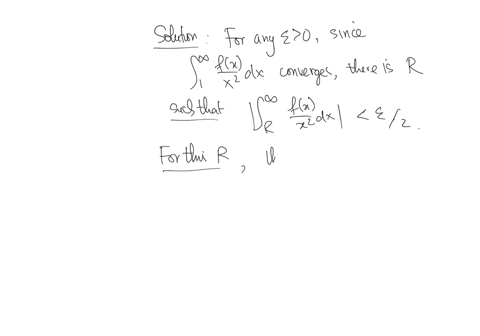 Solution : For any ε>0, since
∫₁^∞ f(x)/x² dx converges, there is R
such that |∫_R^∞ f(x)/x² dx| < ε/2.
For this R,